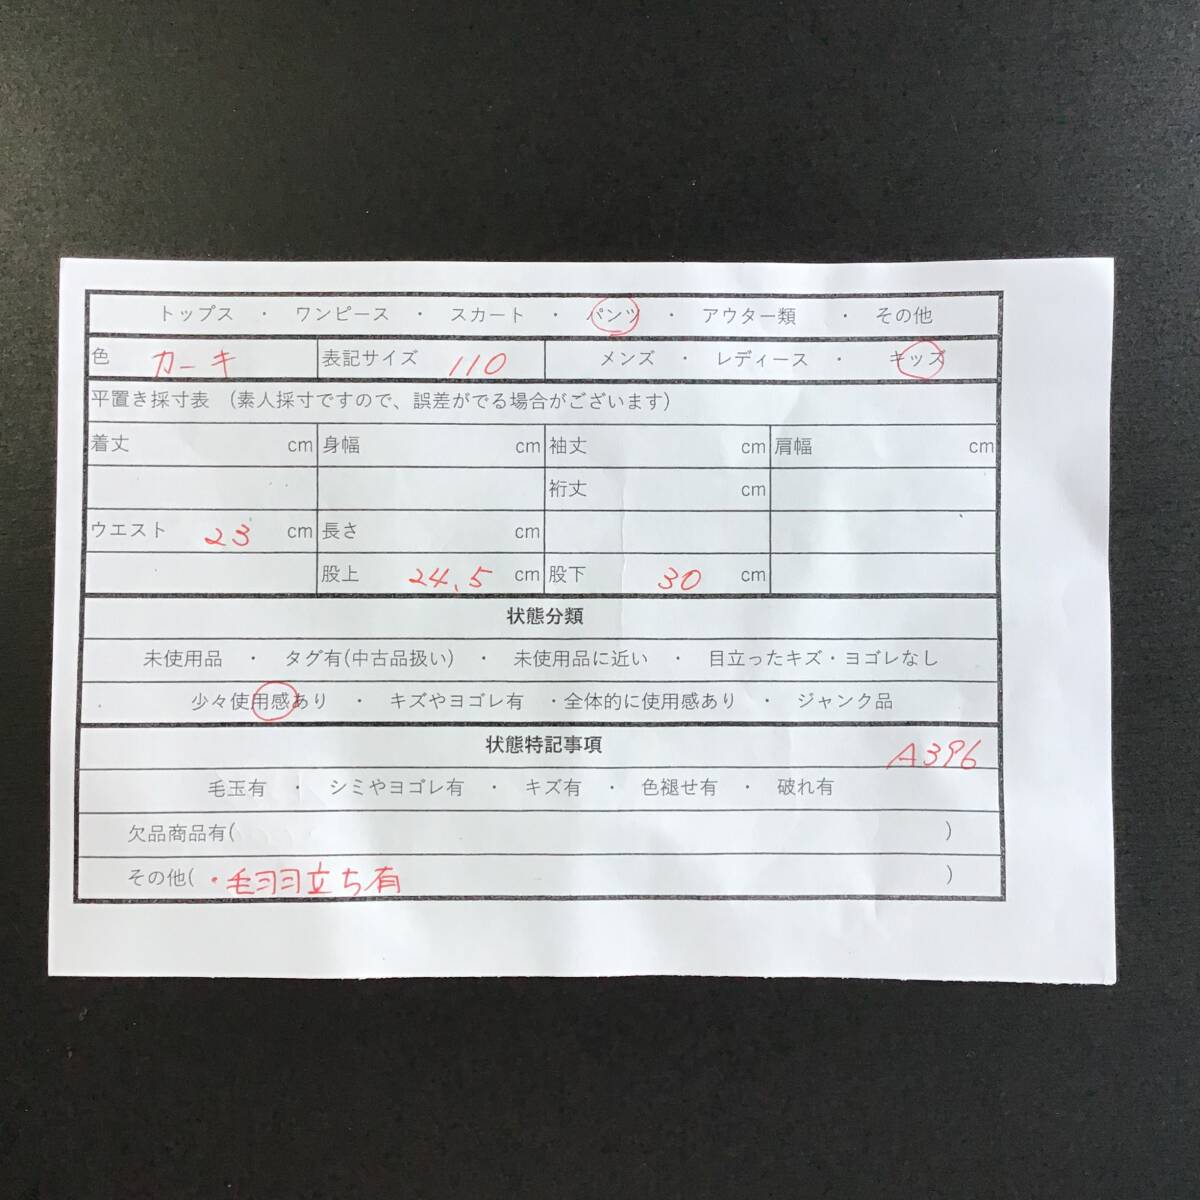 トップス ・ ワンピース ・ スカート ・ パンツ ・ アウター類 ・ その他
色 カーキ 表記サイズ 110 メンズ ・ レディース ・ キッズ
平置き採寸表 (素人採寸ですので、誤差がでる場合がございます)
着丈 cm 身幅 cm 袖丈 cm 肩幅 cm
裄丈 cm
ウエスト 23 cm 長さ cm
股上 24.5 cm 股下 30 cm
状態分類
未使用品 ・ タグ有(中古品扱い) ・ 未使用品に近い ・ 目立ったキズ・ヨゴレなし
少々使用感あり ・ キズやヨゴレ有 ・全体的に使用感あり ・ ジャンク品
状態特記事項 A396
毛玉有 ・ シミやヨゴレ有 ・ キズ有 ・ 色褪せ有 ・ 破れ有
欠品商品有( )
その他( ・毛羽立ち有 )